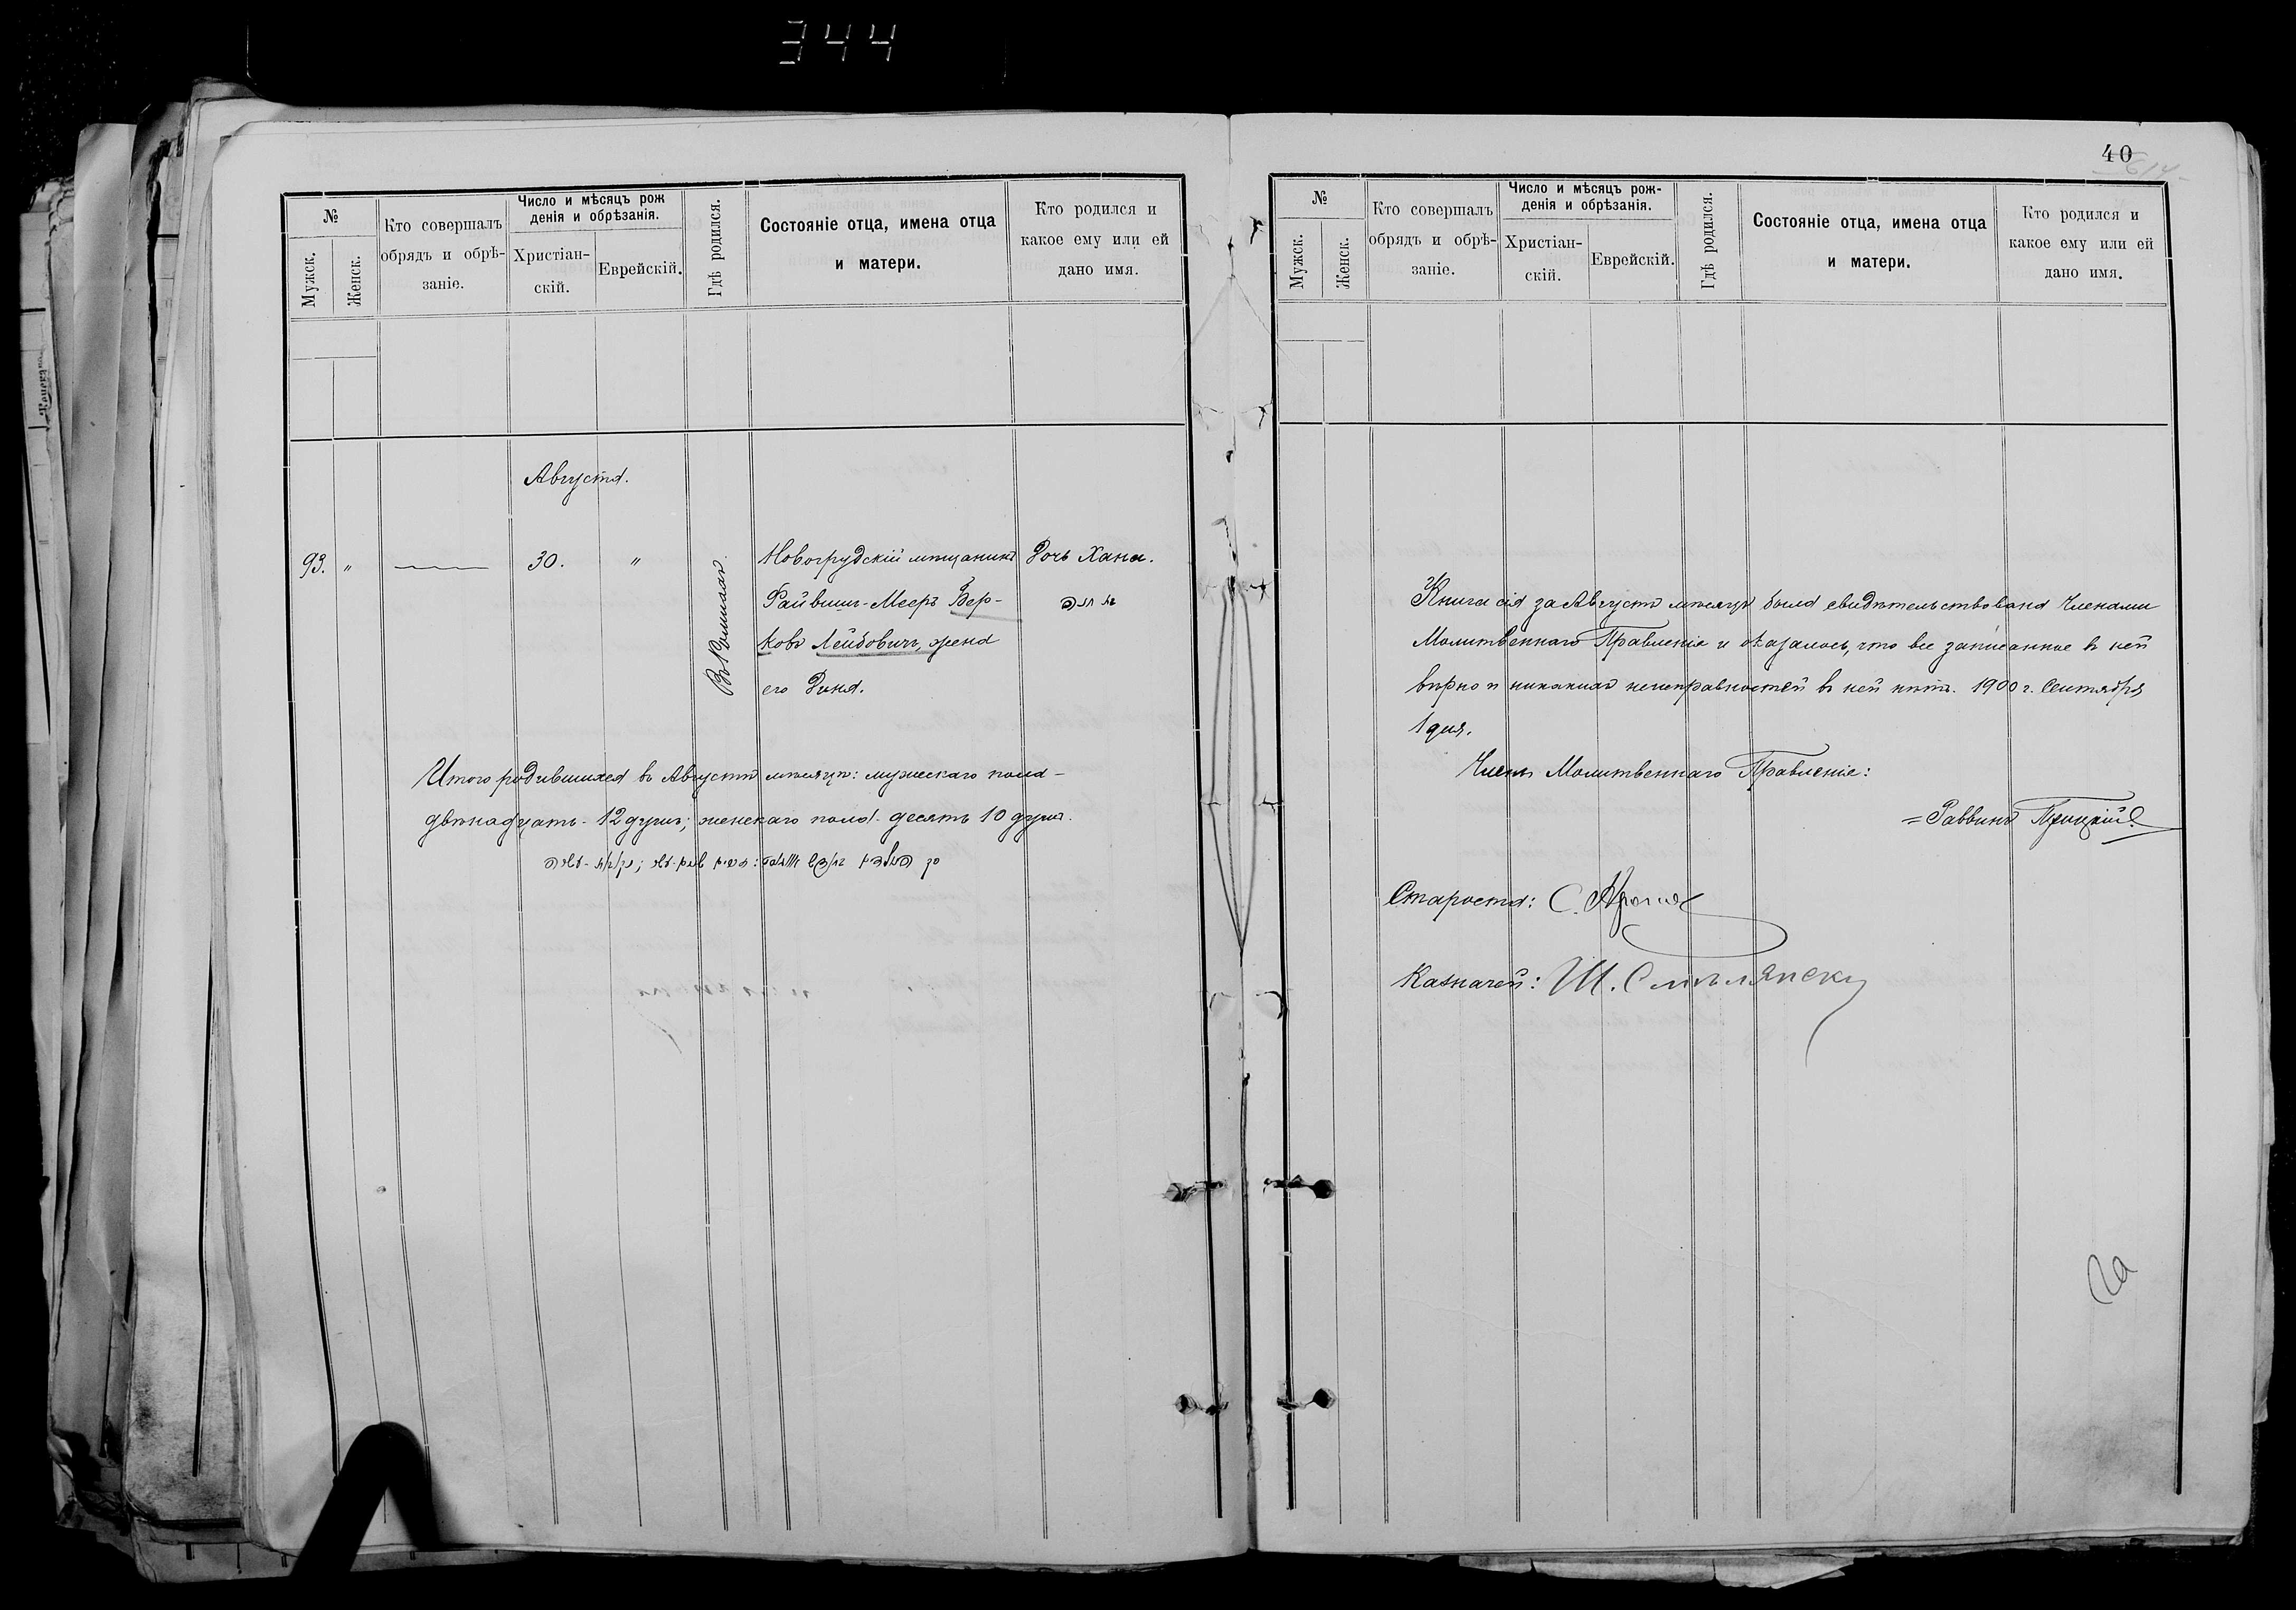 344
№
Мужск.
Женск.
Кто совершалъ
обрядъ и обрѣ-
заніе.
Число и мѣсяцъ рож
денія и обрѣзанія.
Христіан-
скій.
Еврейскій.
Гдѣ родился.
Состояніе отца, имена отца
и матери.
Кто родился и
какое ему или ей
дано имя.
Августа.
93. " 30. "
Новогрудскій мѣщанинъ
Файвиш-Мееръ Бер-
ковъ Лейбовичъ, жена
его Дина.
Дочь Хана.
Итого родившихся въ Августѣ мѣсяцѣ: мужескаго пола -
двѣнадцать - 12 душъ; женскаго пола - десять 10 душъ.
40
№
Мужск.
Женск.
Кто совершалъ
обрядъ и обрѣ-
заніе.
Число и мѣсяцъ рож-
денія и обрѣзанія.
Христіан-
скій.
Еврейскій.
Гдѣ родился.
Состояніе отца, имена отца
и матери.
Кто родился и
какое ему или ей
дано имя.
Книга сія за Августъ мѣсяцъ была свидѣтельствована Членами
Молитвеннаго Правленія и оказалось, что все записанное въ ней
вѣрно и никакихъ неисправностей въ ней нѣтъ. 1900 г. Сентября
1 дня.
Члены Молитвеннаго Правленія:
= Раввинъ
Староста: С.
Казначей: Ш.